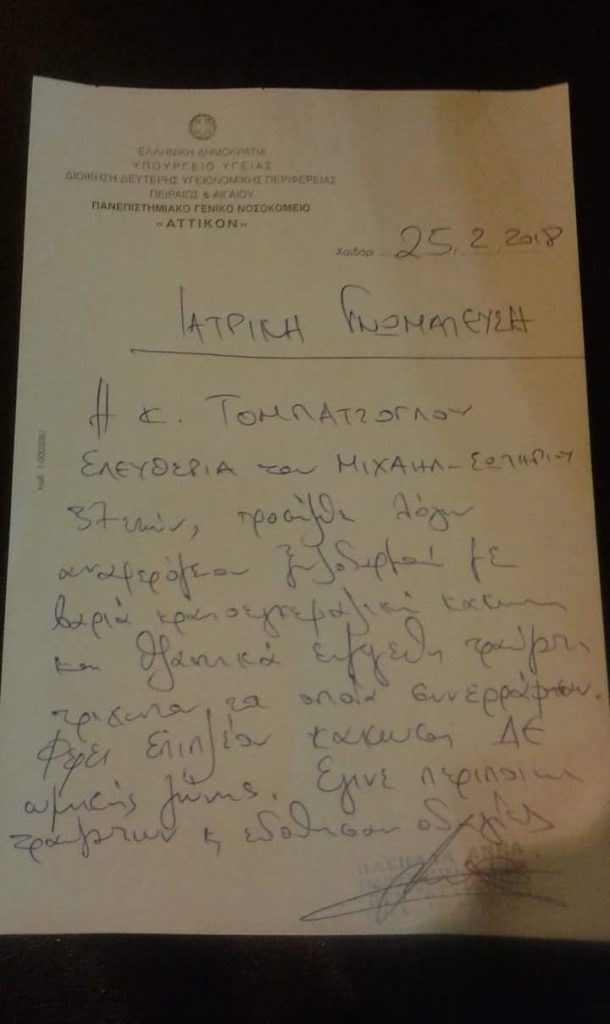 ΕΛΛΗΝΙΚΗ ΔΗΜΟΚΡΑΤΙΑ
ΥΠΟΥΡΓΕΙΟ ΥΓΕΙΑΣ
ΔΙΟΙΚΗΣΗ ΔΕΥΤΕΡΗΣ ΥΓΕΙΟΝΟΜΙΚΗΣ ΠΕΡΙΦΕΡΕΙΑΣ
ΠΕΙΡΑΙΩΣ & ΑΙΓΑΙΟΥ
ΠΑΝΕΠΙΣΤΗΜΙΑΚΟ ΓΕΝΙΚΟ ΝΟΣΟΚΟΜΕΙΟ
«ΑΤΤΙΚΟΝ»
Χαϊδάρι 25. 2. 2018
ΙΑΤΡΙΚΗ ΓΝΩΜΑΤΕΥΣΗ
Η κ. ΤΟΜΠΑΤΖΟΓΛΟΥ
ΕΛΕΥΘΕΡΙΑ του ΜΙΧΑΗΛ-ΣΩΤΗΡΙΟΥ
37 ετών, προσήλθε λόγω
αναφερόμενου ξυλοδαρμού με
βαριά κρανιοεγκεφαλική κάκωση
και θλαστικά τραύματα
τα οποία συνερράφησαν.
Φέρει επιπλέον κάκωση ΔΕ
ωμικής ζώνης. Έγινε περιποίηση
τραυμάτων κ εδόθησαν οδηγίες